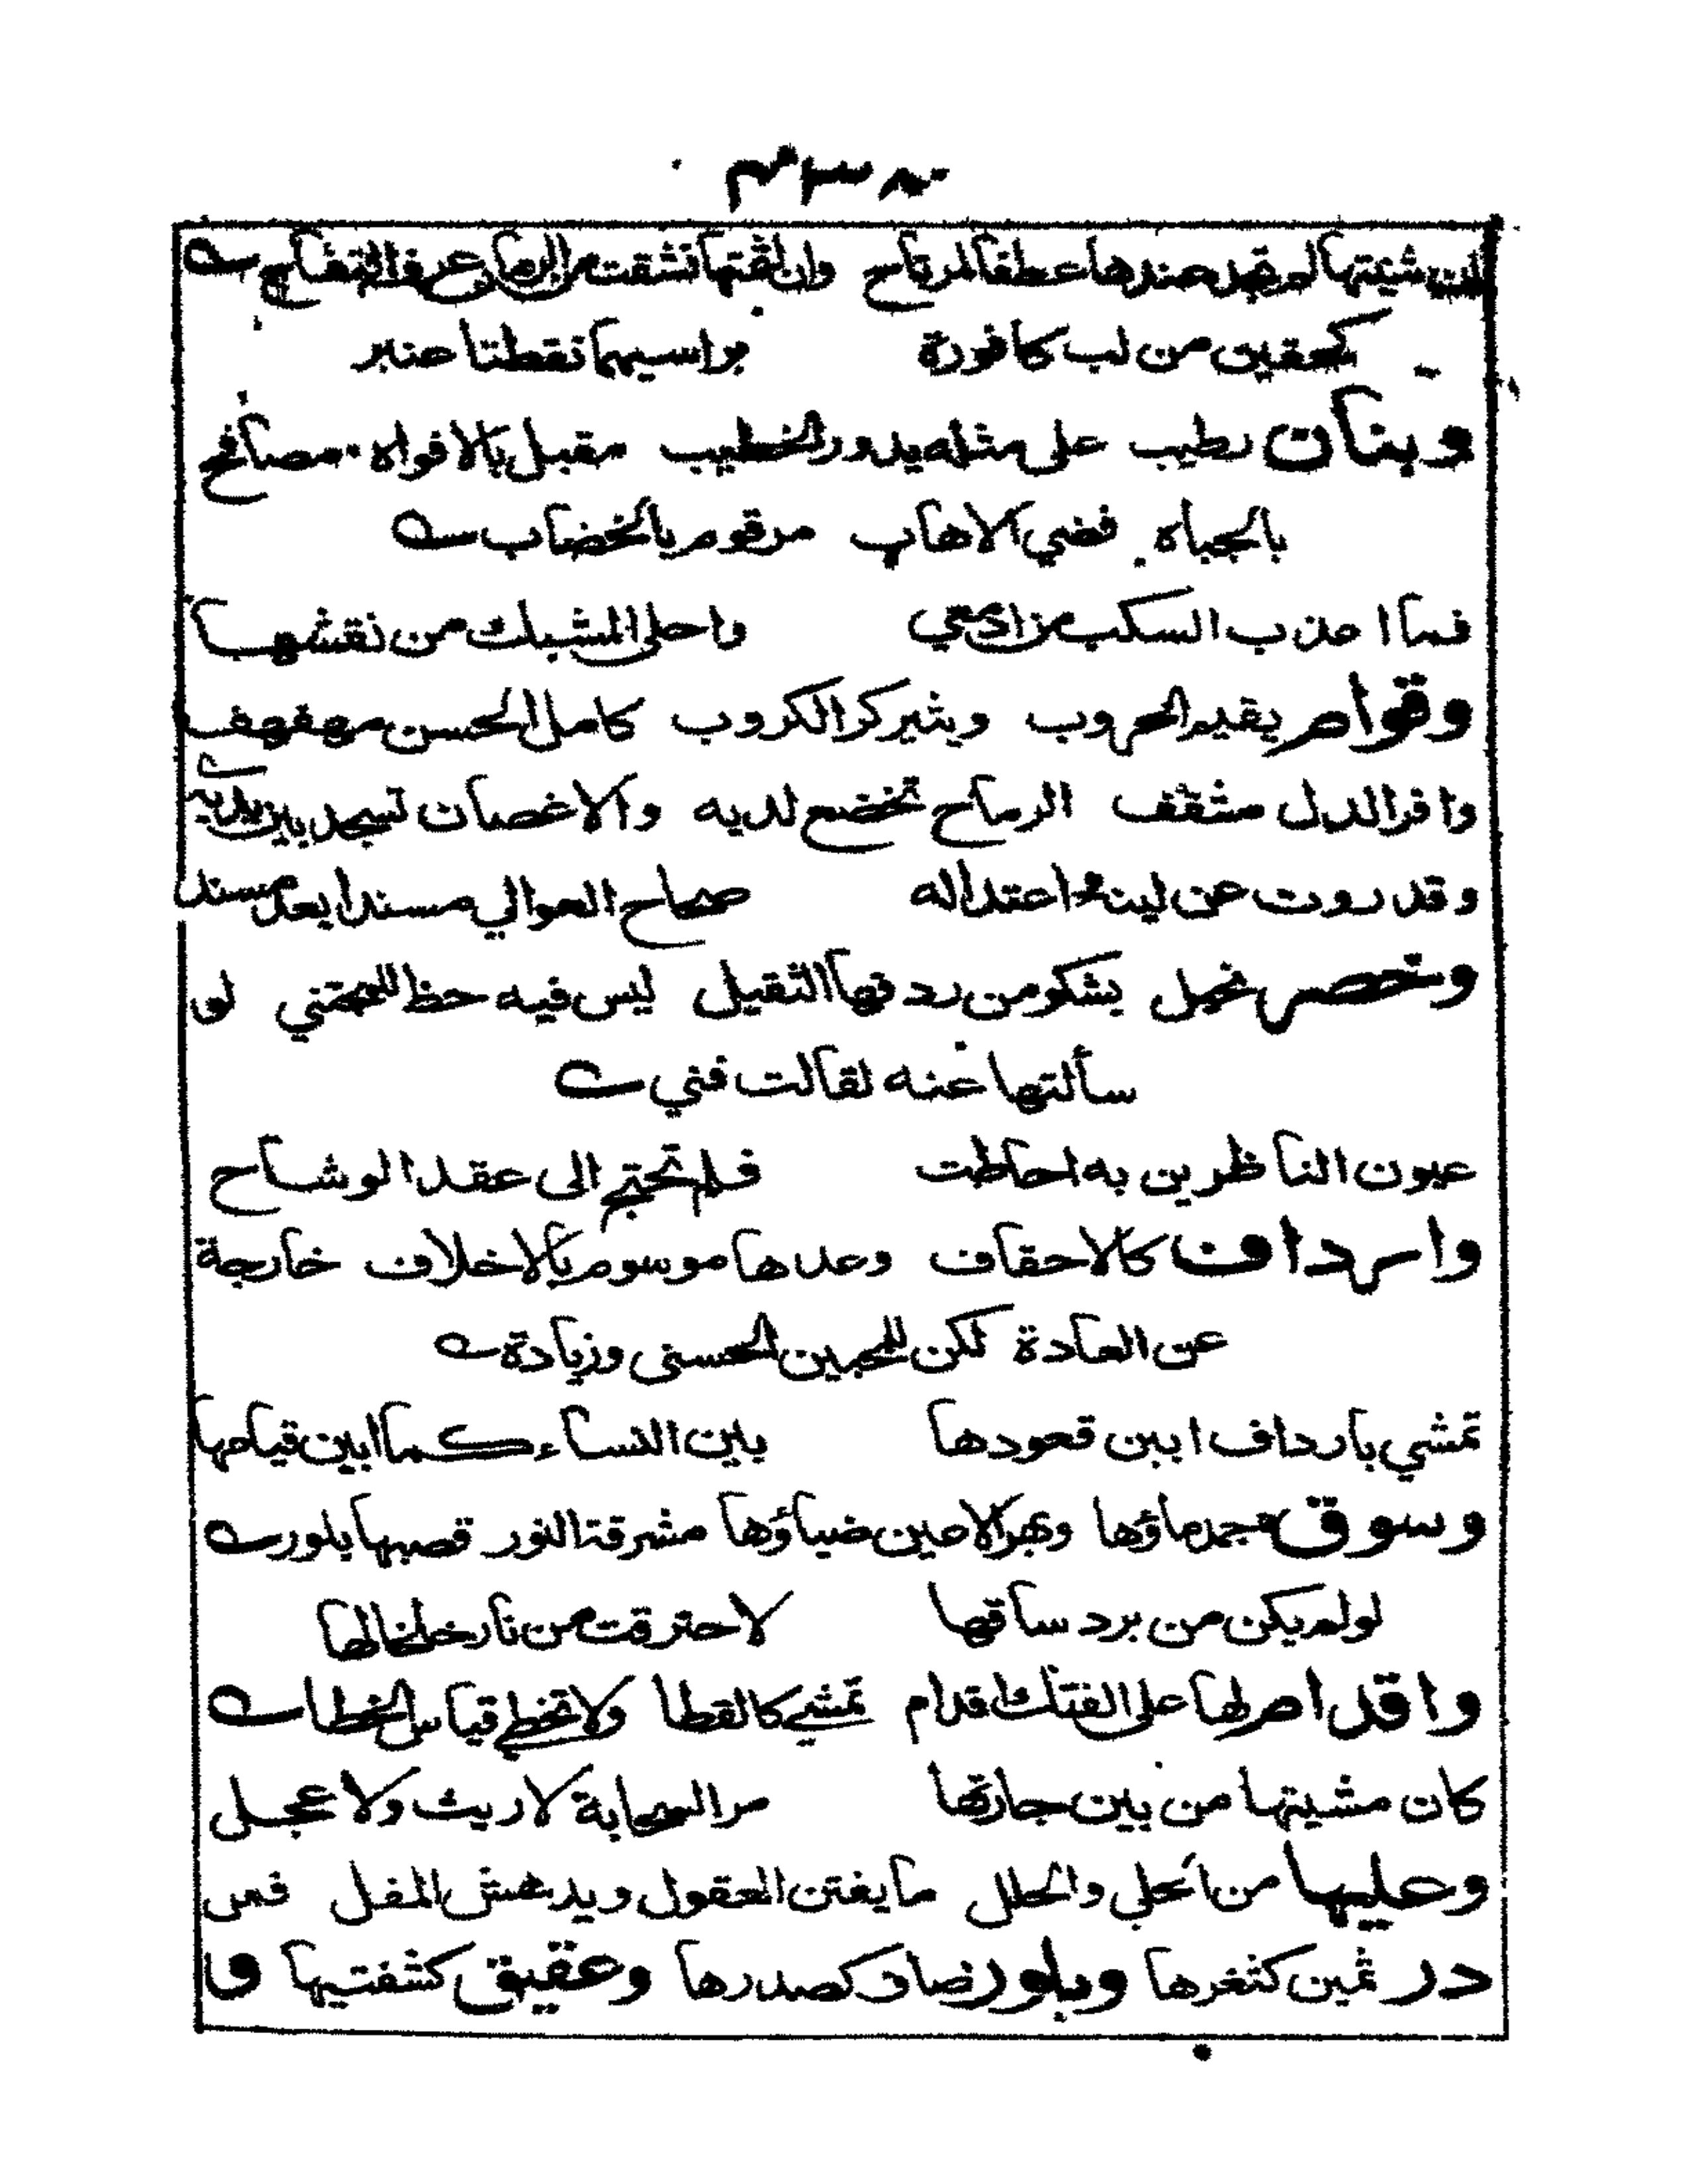 لم تجد عندها عطفا لمرتاح وان لثمتها تنشقت من الرمان عرف التفاح
كحقين من لب كافورة براسيهما نقطتا عنبر
وبنان رطيب على مثله يدور الخطيب مقبل بالافواه مصافح
بالجباه فضي الاهاب مرقوم بالخضاب
فما اعذب السكب من ادمعي واحلى المشبك من نقشها
وقوام يقيم الحروب ويثير كرا الكروب كامل الحسن مهفهف
وافر الدل مثقف الرماح تخضع لديه والاغصان تسجد بين يديه
وقد روت عن لينه واعتداله صحاح العوالي مسندا بعد مسند
وخصر نحيل يشكو من ردفها الثقيل ليس فيه حظ للمجتني لو
سألتها عنه لقالت فني
عيون الناظرين به احاطت فلم تحتج الى عقد الوشاح
وارداف كالاحقاف وعدها موسوم بالاخلاف خارجة
عن العادة لكن للمحبين الحسنى وزيادة
تمشي بارداف ابين قعودها بين النساء كما ابين قيامها
وسوق جمد ماؤها وبهر الاعين ضياؤها مشرقة النور قصبها بلور
لو لم يكن من برد ساقها لاحترقت من نار خلخالها
واقدام لها على الفتك اقدام تمشي كالقطا ولا تخطي قياس الخطا
كان مشيتها من بين جارتها مر السحابة لا ريث ولا عجل
وعليها من الحلي والحلل ما يفتن العقول ويدهش المقل فمن
در ثمين كثغرها وبلور صاف كصدرها وعقيق كشفتيها و